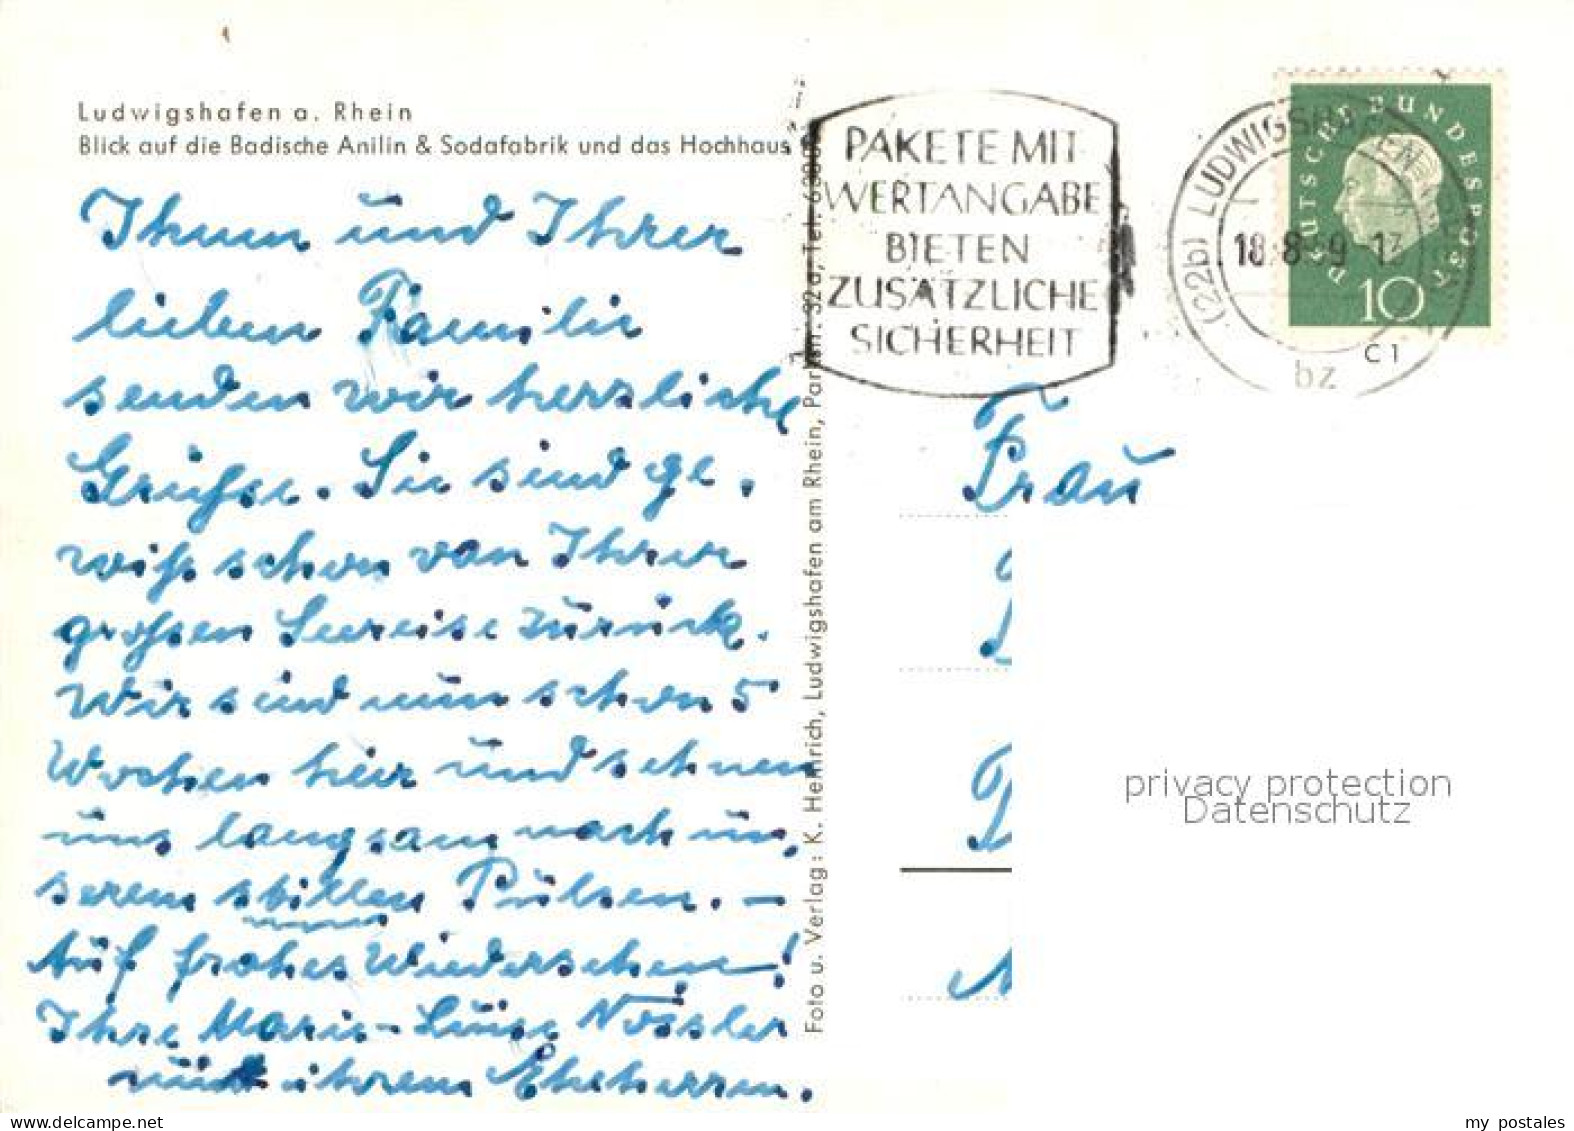 Ludwigshafen a. Rhein
Blick auf die Badische Anilin & Sodafabrik und das Hochhaus
Ihnen und Ihrer
lieben Familie
senden wir herzliche
Grüße. Sie sind ge-
wiß schon von Ihrer
großen Seereise zurück.
Wir sind nun schon 5
Wochen hier und sehnen
uns langsam nach un,
serem stillen Pülsen. —
Auf frohes Wiedersehen!
Ihre Marie-Luise Nössler
und ihrem Eheherrn.
Foto u. Verlag: K. Heinrich, Ludwigshafen am Rhein, Parkstr. 32a, Tel.
PAKETE MIT
WERTANGABE
BIETEN
ZUSÄTZLICHE
SICHERHEIT
(22b) LUDWIGSHAFEN
18.8. 9 17
bz
DEUTSCHE BUNDESPOST
10
C1
Frau
privacy protection
Datenschutz
www.delcampe.net
my postales